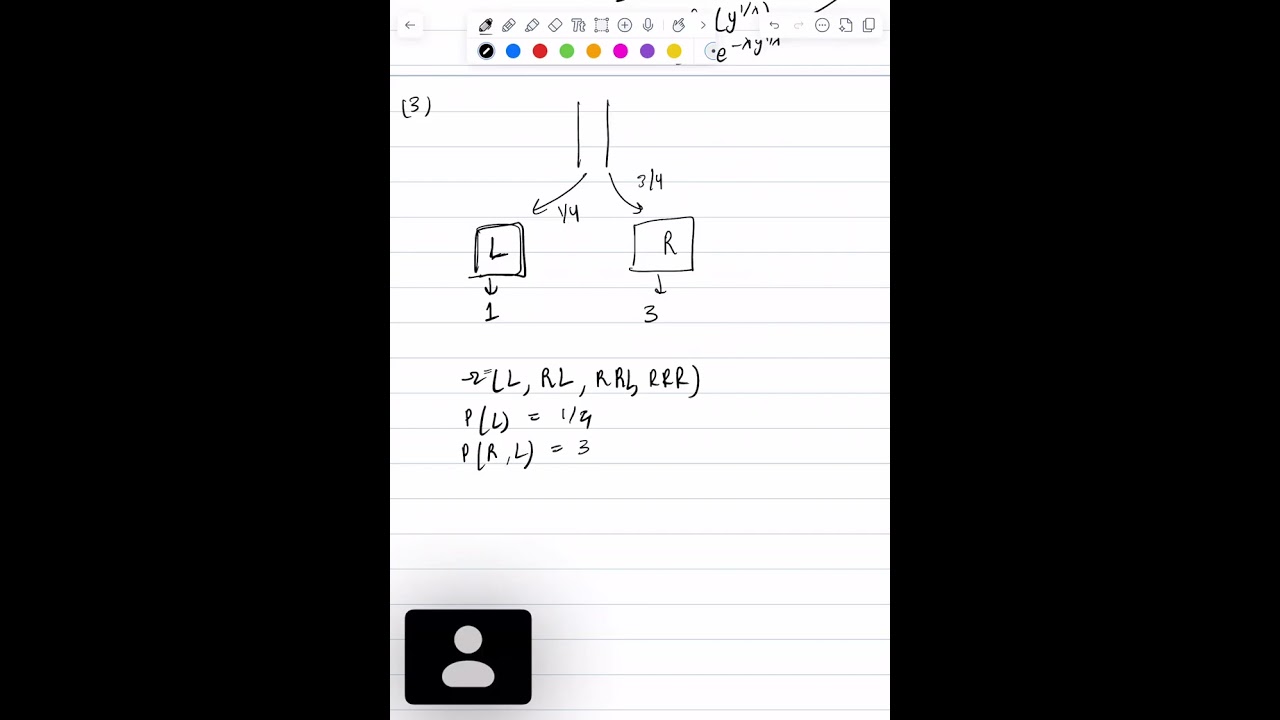 (y^{1/λ})
e^{-λy^{1/λ}}
(3)
3/4
1/4
L R
1 3
Ω = (L, RL, RRL, RRR)
P(L) = 1/4
P(R,L) = 3